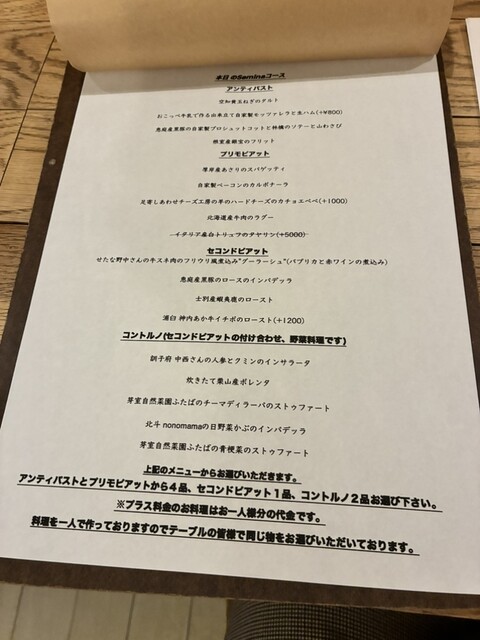 本日のSeminaコース
アンティパスト
空知黄玉ねぎのタルト
おこっぺ牛乳で作る出来立て自家製モッツァレラと生ハム(+¥800)
恵庭産黒豚の自家製プロシュットコットと林檎のソテーと山わさび
根室産銀宝のフリット
プリモピアット
厚岸産あさりのスパゲッティ
自家製ベーコンのカルボナーラ
足寄しあわせチーズ工房の羊のハードチーズのカチョエペペ(+1000)
北海道産牛肉のラグー
イタリア産白トリュフのタヤリン(+5000)
セコンドピアット
せたな野中さんの牛スネ肉のフリウリ風煮込み"グーラーシュ"(パプリカと赤ワインの煮込み)
恵庭産黒豚のロースのインパデッラ
士別産蝦夷鹿のロースト
浦臼 神内あか牛イチボのロースト(+1200)
コントルノ(セコンドピアットの付け合わせ、野菜料理です)
訓子府 中西さんの人参とクミンのインサラータ
炊きたて栗山産ポレンタ
芽室自然菜園ふたばのチーマディラーパのストゥファート
北斗 nonomamaの日野菜かぶのインパデッラ
芽室自然菜園ふたばの青梗菜のストゥファート
上記のメニューからお選びいただきます。
アンティパストとプリモピアットから4品、セコンドピアット1品、コントルノ2品お選び下さい。
※プラス料金のお料理はお一人様分の代金です。
料理を一人で作っておりますのでテーブルの皆様で同じ物をお選びいただいております。